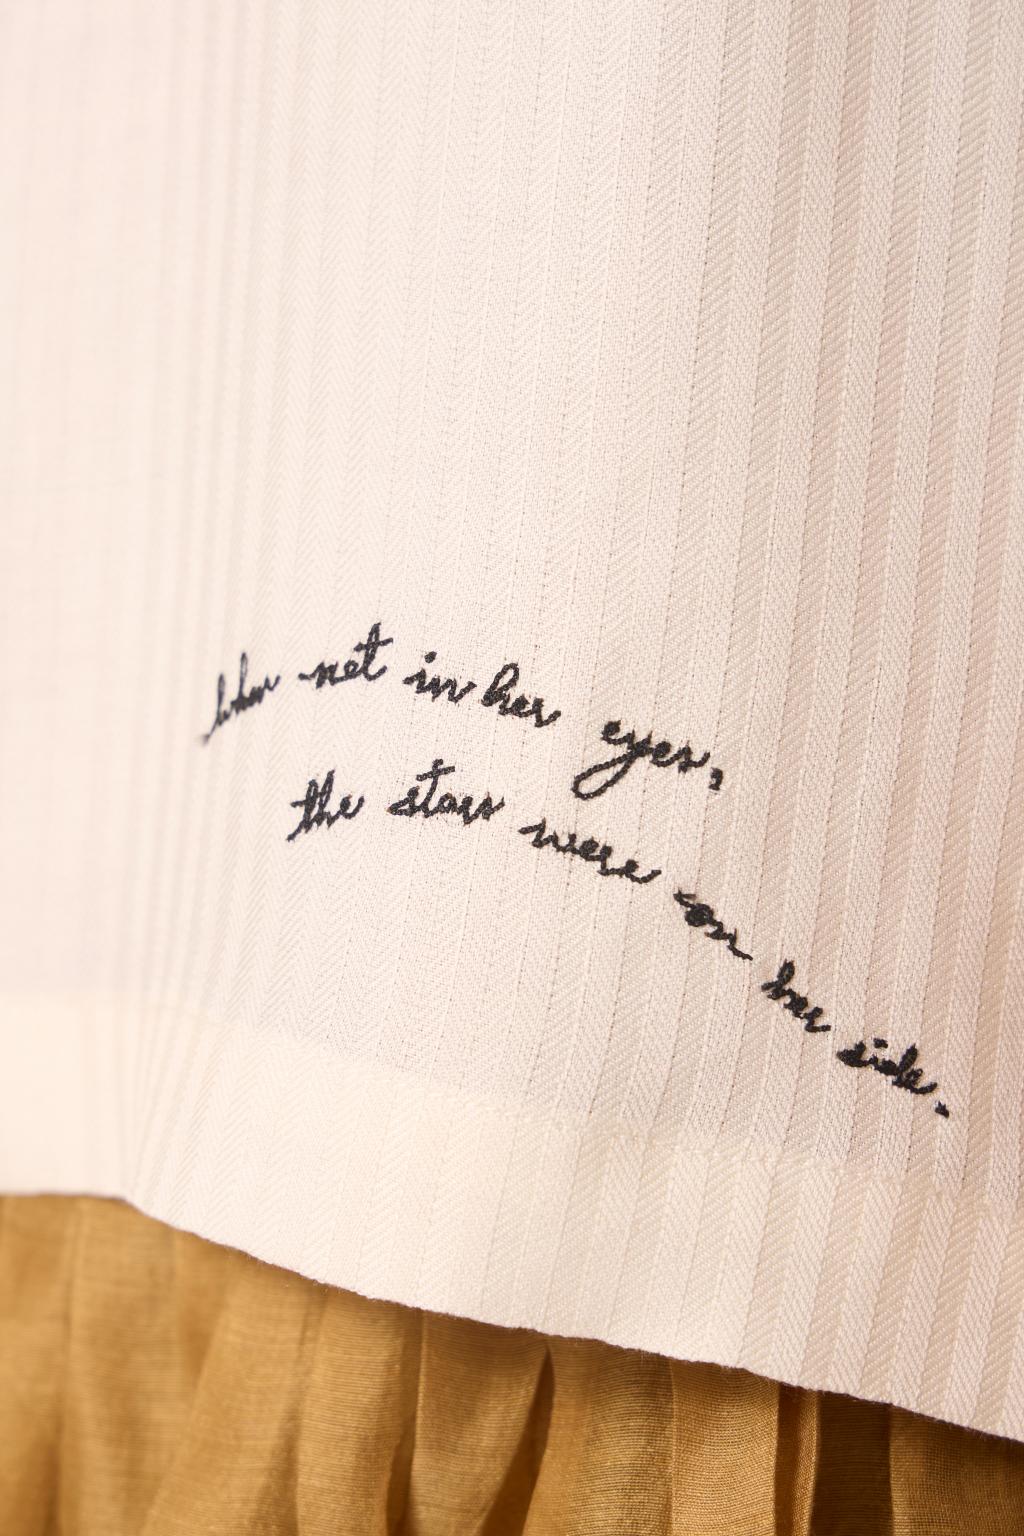 When not in her eyes,
the stars were on her side.